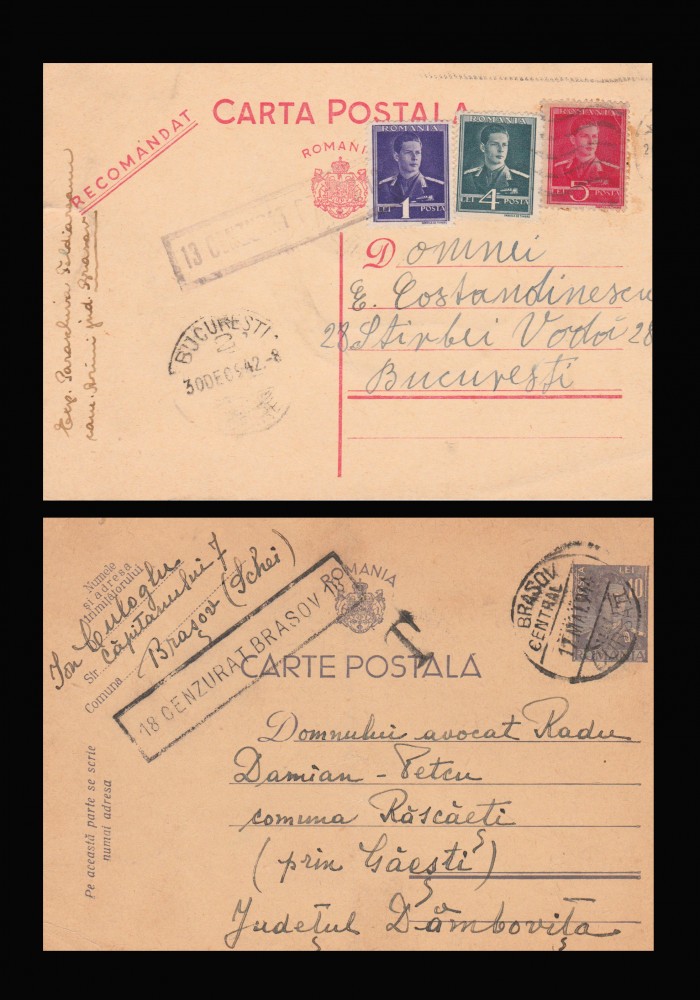 RECOMANDAT
CARTA POSTALA
ROMANIA
ROMANIA
LEI 1 POSTA
ROMANIA
LEI 4 POSTA
ROMANIA
LEI 5 POSTA
13
BUCUREȘTI
2
30 DEC 942.-8
jud. Brasov
Domnei
E. Costandinescu
28 Stirbei Vodă 28
București
Numele
și adresa
trimițătorului
Ion Culoglu
Str. Căpitanului 7
Comuna Brașov (Schei)
18 CENZURAT BRASOV 18
ROMANIA
CARTE POSTALĂ
T
BRAȘOV
CENTRAL
LEI
10
ROMANIA
Pe această parte se scrie
numai adresa
Domnului avocat Radu
Damian-Petcu
comuna Răscăeți
(prin Găești)
Județul Dâmbovița